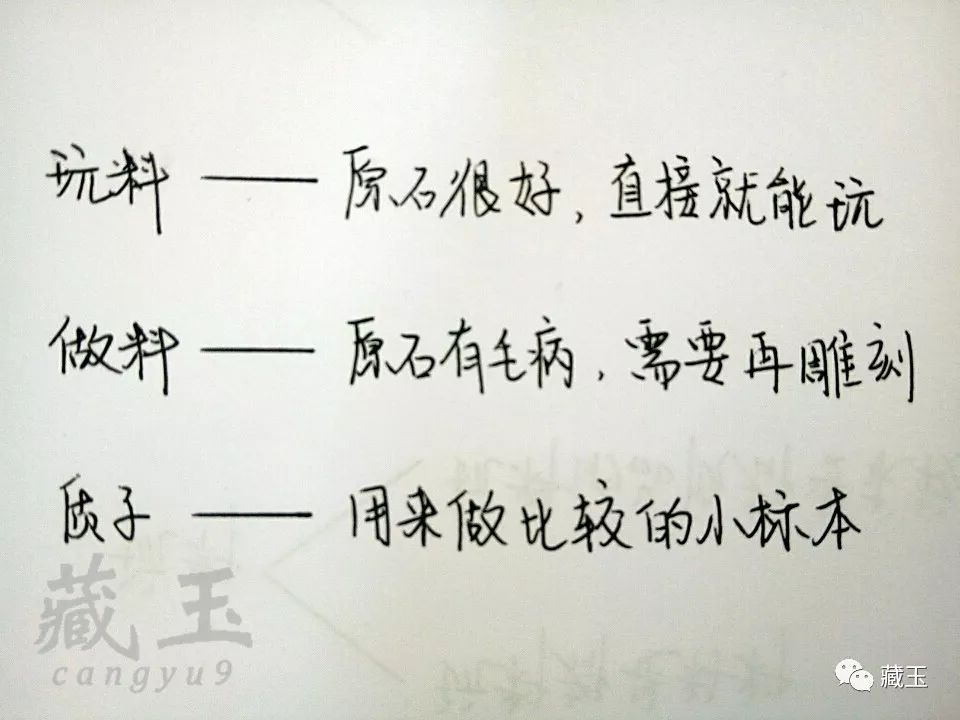 玩料 —— 原石很好，直接就能玩
做料 —— 原石有毛病，需要再雕刻
质子 —— 用来做比较的小标本
藏玉
cangyu9
藏玉